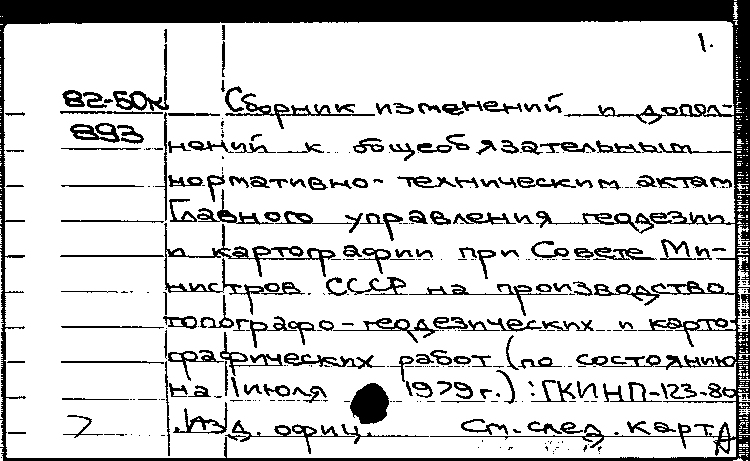 1.
82-50к Сборник изменений и допол-
893
нений к общеобязательным
нормативно-техническим актам
Главного управления геодезии
и картографии при Совете Ми-
нистров СССР на производство
топографо-геодезических и карто-
графических работ (по состоянию
на 1 июля 1979 г.) : ГКИНП-123-80
.Изд. офиц. См. след. карт.